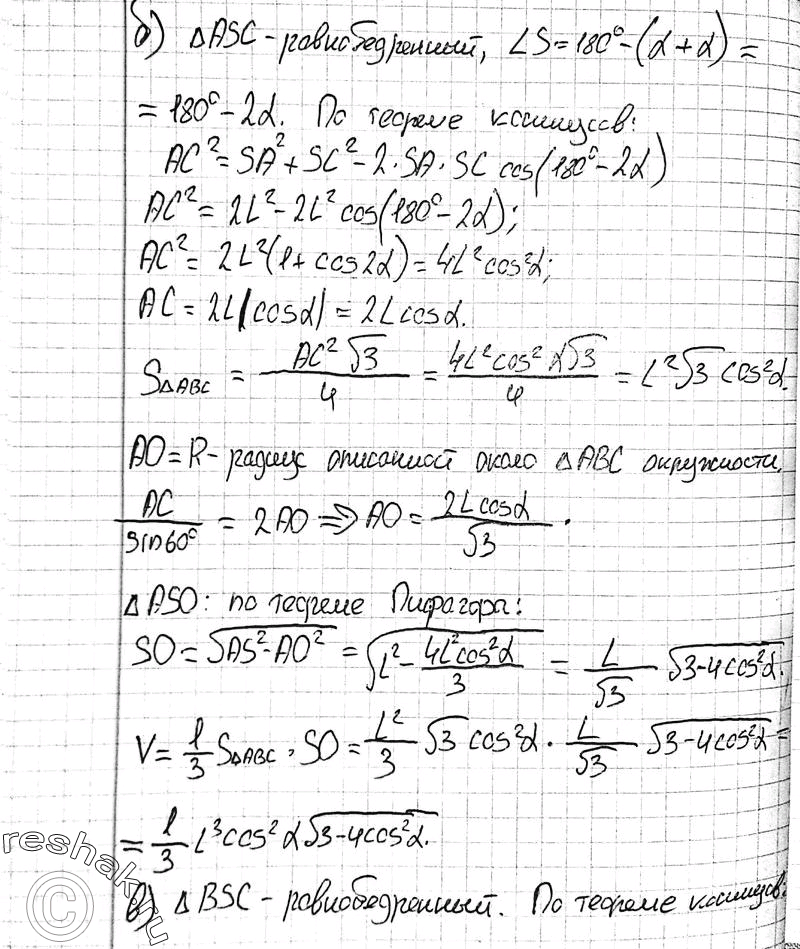 б) ΔASC - равнобедренный, ∠S = 180° - (α + α) =
= 180° - 2α. По теореме косинусов:
AC² = SA² + SC² - 2·SA·SC cos(180° - 2α)
AC² = 2L² - 2L² cos(180° - 2α);
AC² = 2L²(1 + cos2α) = 4L²cos²α;
AC = 2L|cosα| = 2L cosα.
S_ΔABC = AC²√3/4 = 4L²cos²α√3/4 = L²√3 cos²α.
AO = R - радиус описанной около ΔABC окружности.
AC/sin60° = 2AO ⇒ AO = 2L cosα/√3.
ΔASO: по теореме Пифагора:
SO = √(AS² - AO²) = √(L² - 4L²cos²α/3) = L/√3 √(3 - 4cos²α).
V = 1/3 S_ΔABC · SO = L²/3 √3 cos²α · L/√3 √(3 - 4cos²α) =
= 1/3 L³cos²α√(3 - 4cos²α).
в) ΔBSC - равнобедренный. По теореме косинусов.
© reshak.ru